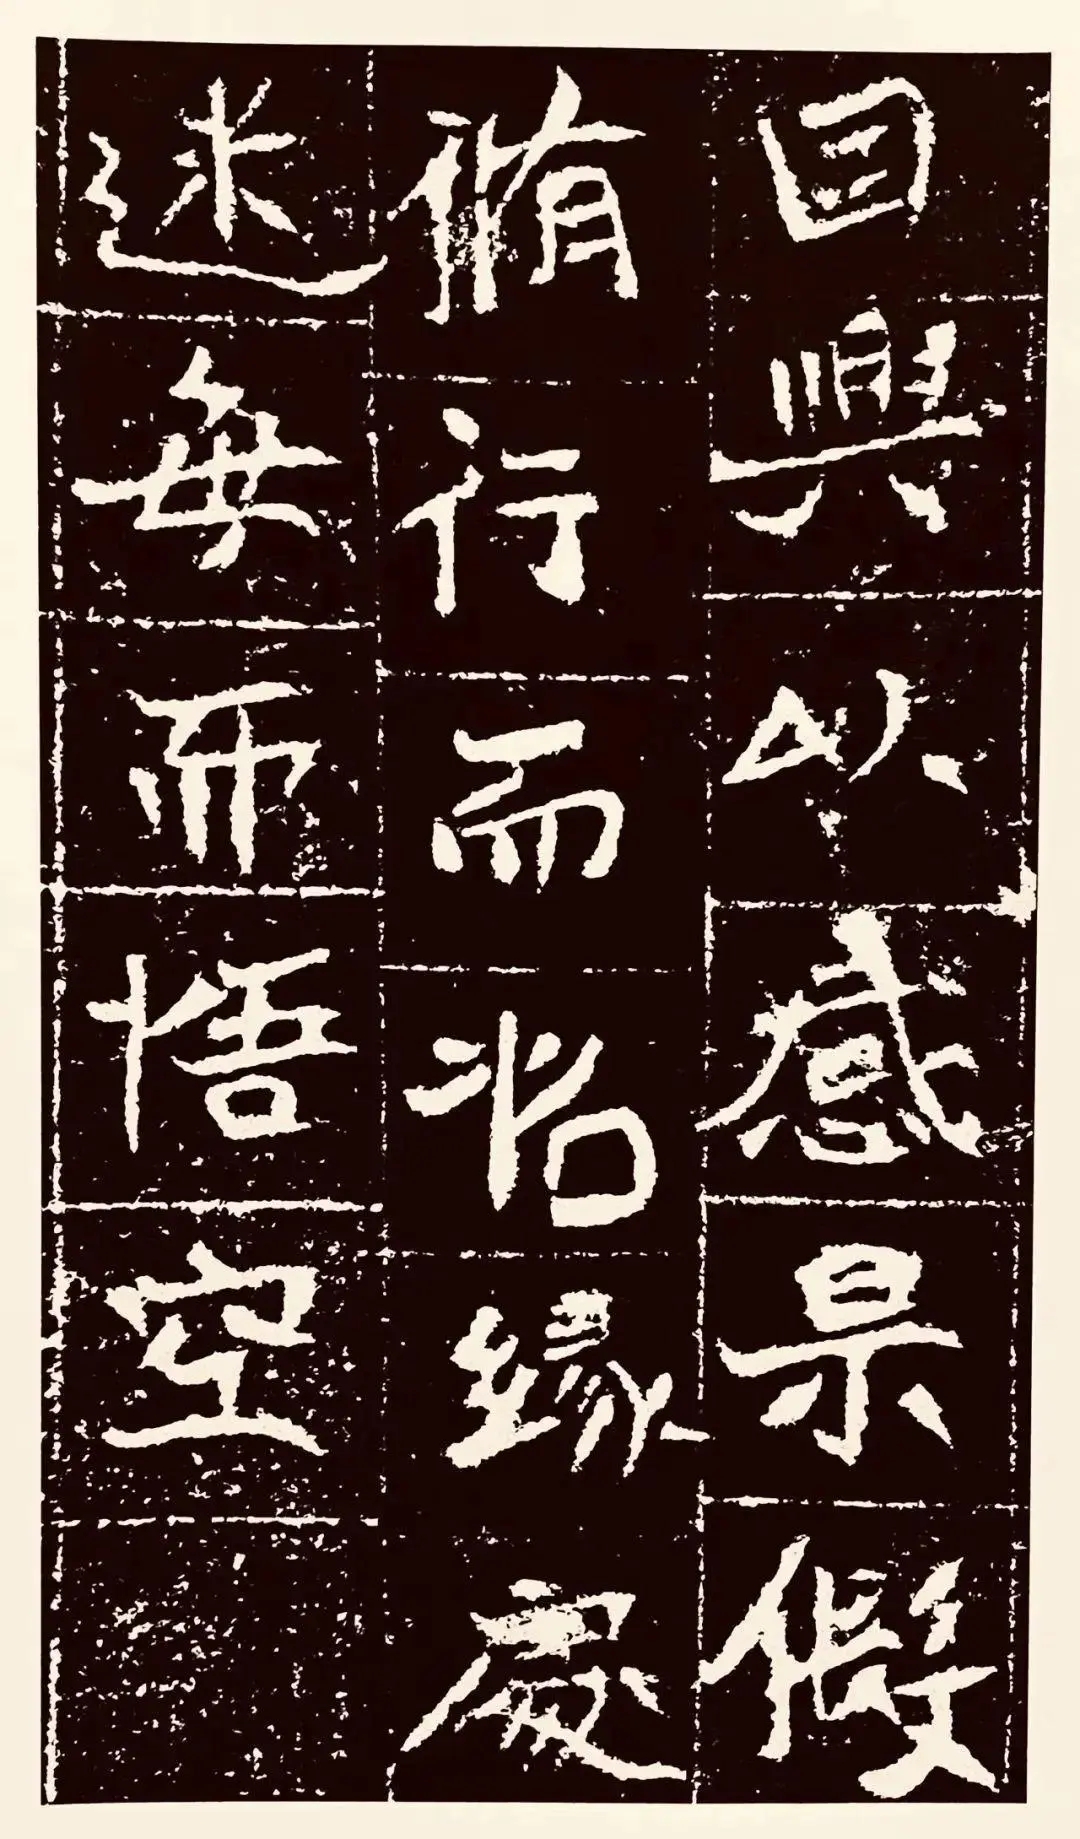 囙興以感果假
脩行而緣處
迷無而悟空